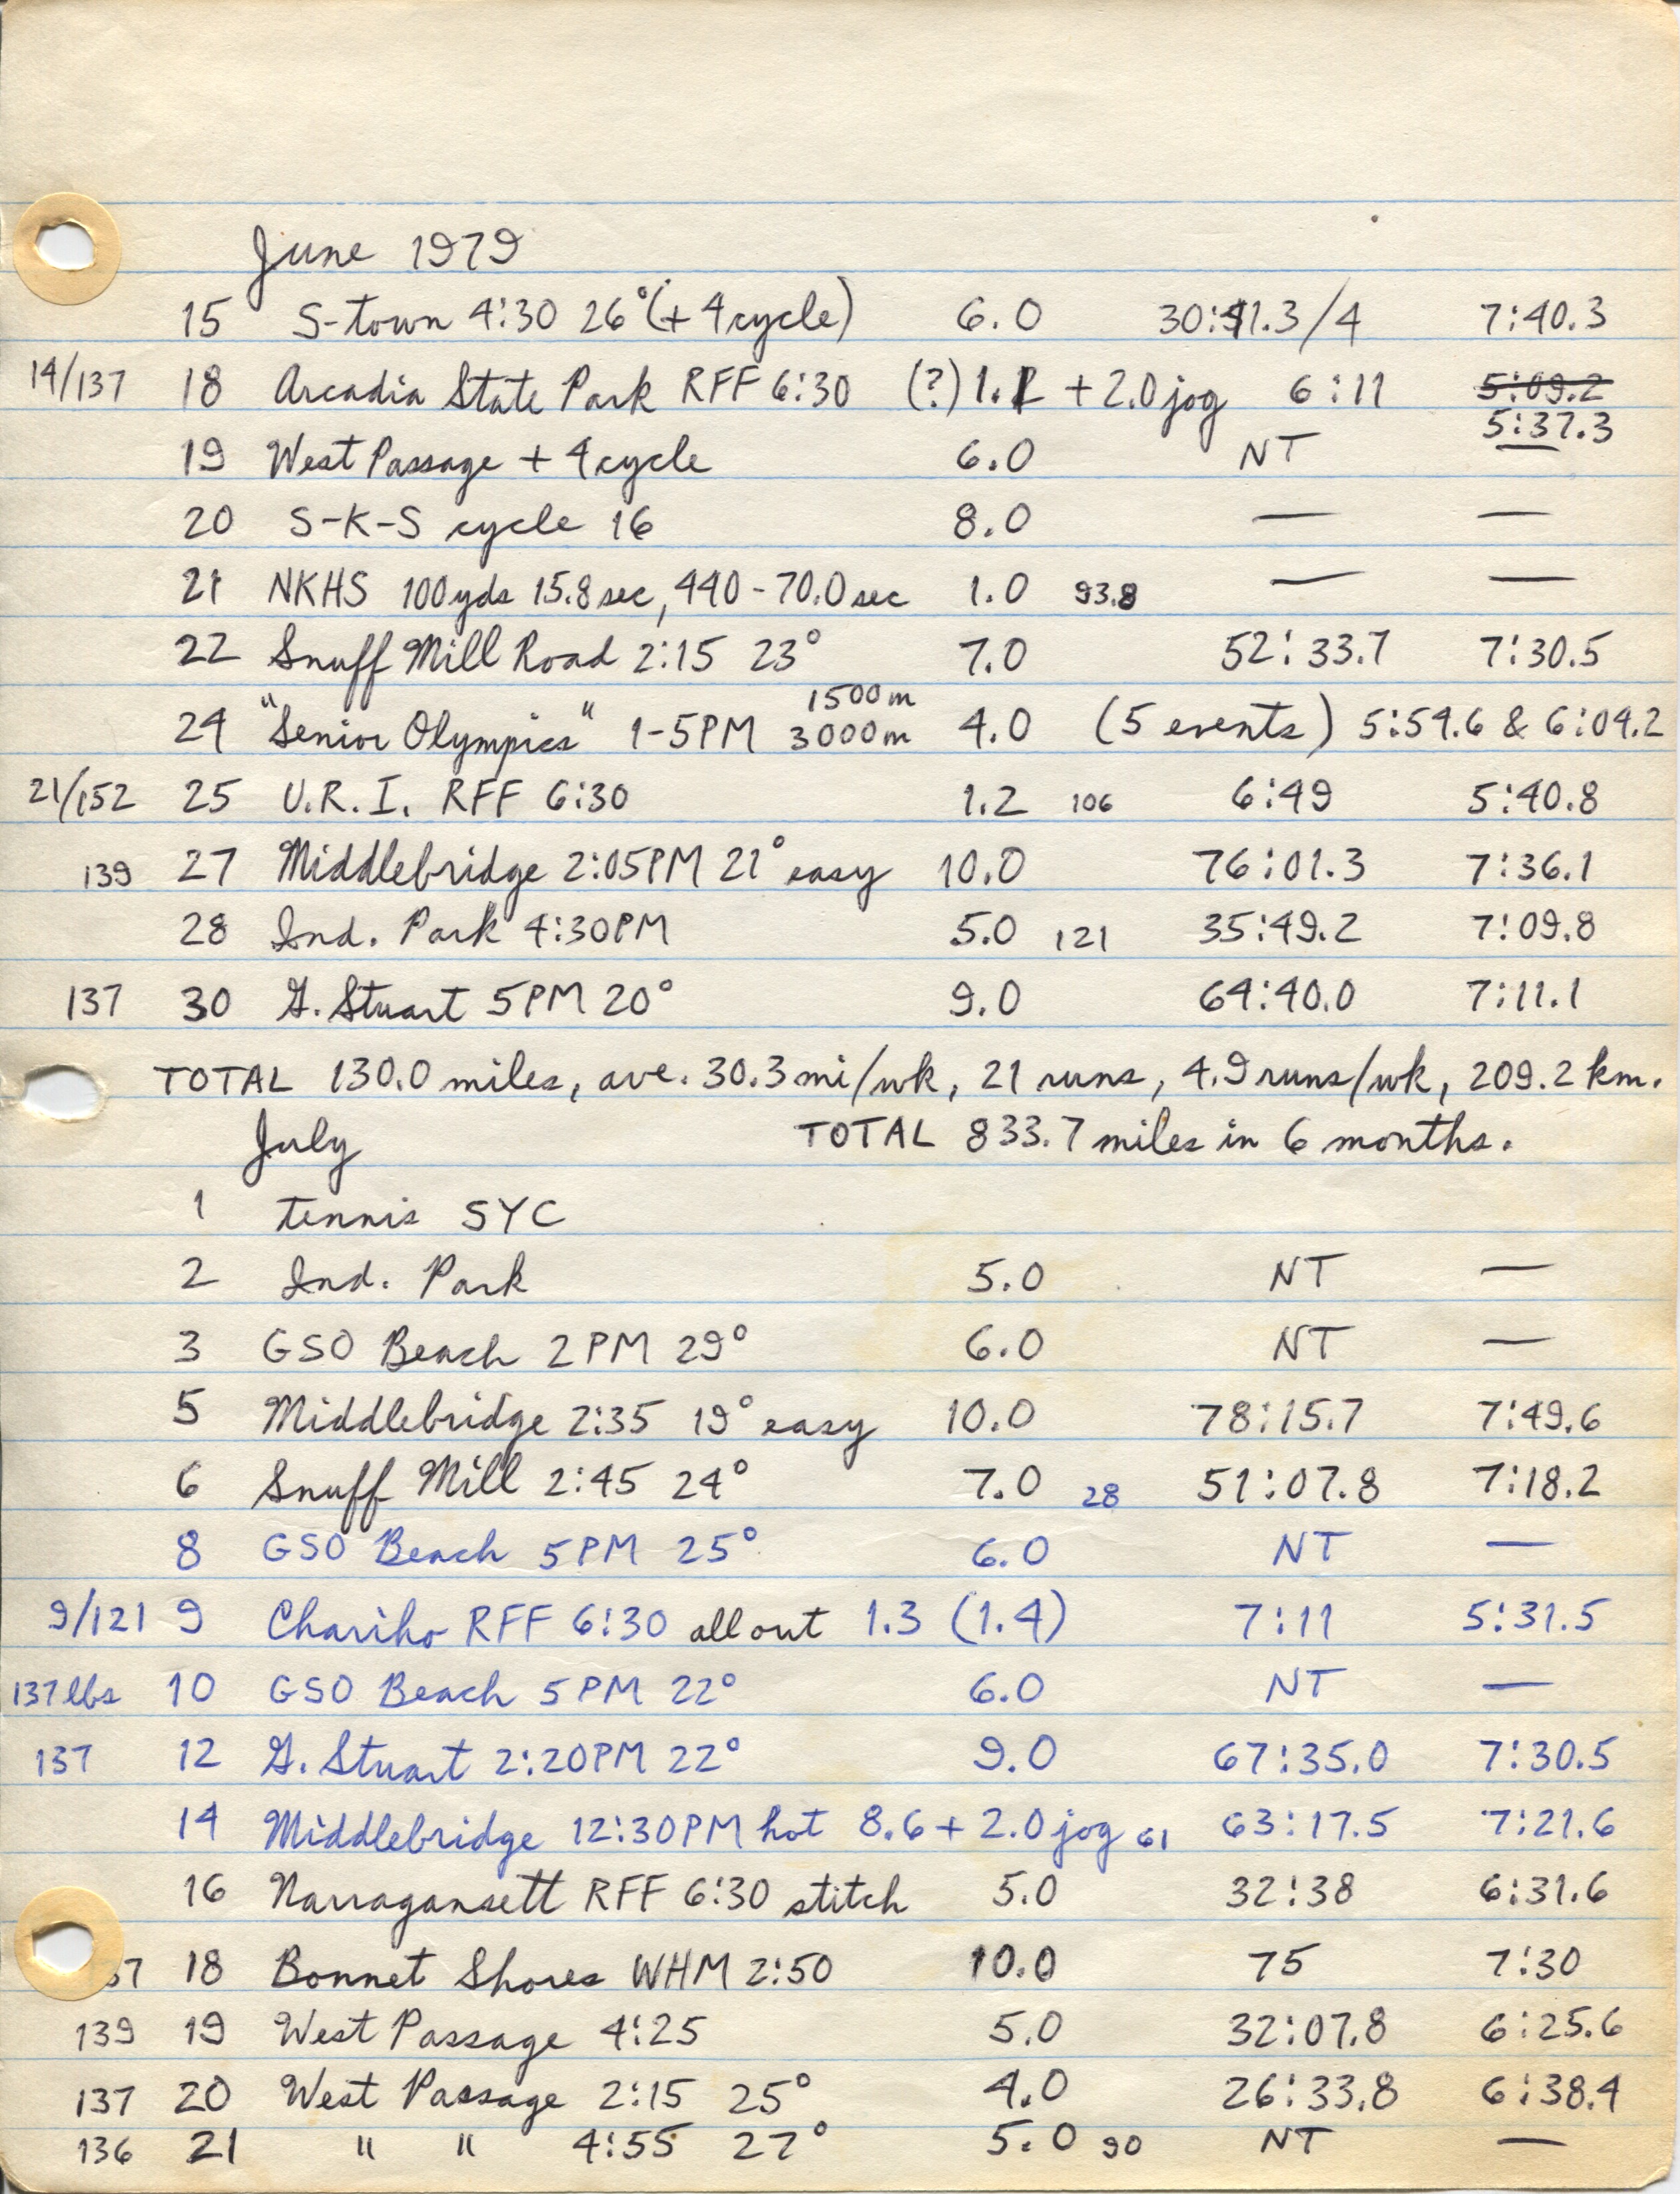 June 1979
15 S-town 4:30 26° (+ 4 cycle) 6.0 30:41.3/4 7:40.3
14/137 18 Arcadia State Park RFF 6:30 (?) 1.1 + 2.0 jog 6:11 5:09.2
5:37.3
19 West Passage + 4 cycle 6.0 NT
20 S-K-S cycle 16 8.0 — —
21 NKHS 100yds 15.8 sec, 440 - 70.0 sec 1.0 93.8 — —
22 Snuff Mill Road 2:15 23° 7.0 52:33.7 7:30.5
1500m
24 "Senior Olympics" 1-5PM 3000m 4.0 (5 events) 5:54.6 & 6:04.2
21/152 25 U.R.I. RFF 6:30 1.2 106 6:49 5:40.8
139 27 Middlebridge 2:05PM 21° easy 10.0 76:01.3 7:36.1
28 Ind. Park 4:30PM 5.0 121 35:49.2 7:09.8
137 30 G. Stuart 5PM 20° 9.0 64:40.0 7:11.1
TOTAL 130.0 miles, ave. 30.3 mi/wk, 21 runs, 4.9 runs/wk, 209.2 km.
July TOTAL 833.7 miles in 6 months.
1 tennis SYC
2 Ind. Park 5.0 NT —
3 GSO Beach 2PM 29° 6.0 NT —
5 Middlebridge 2:35 19° easy 10.0 78:15.7 7:49.6
6 Snuff Mill 2:45 24° 7.0 28 51:07.8 7:18.2
8 GSO Beach 5PM 25° 6.0 NT —
9/121 9 Chariho RFF 6:30 all out 1.3 (1.4) 7:11 5:31.5
137 lbs 10 GSO Beach 5PM 22° 6.0 NT —
137 12 G. Stuart 2:20PM 22° 9.0 67:35.0 7:30.5
14 Middlebridge 12:30PM hot 8.6 + 2.0 jog 61 63:17.5 7:21.6
16 Narragansett RFF 6:30 stitch 5.0 32:38 6:31.6
37 18 Bonnet Shores WHM 2:50 10.0 75 7:30
139 19 West Passage 4:25 5.0 32:07.8 6:25.6
137 20 West Passage 2:15 25° 4.0 26:33.8 6:38.4
136 21 " " 4:55 27° 5.0 90 NT —